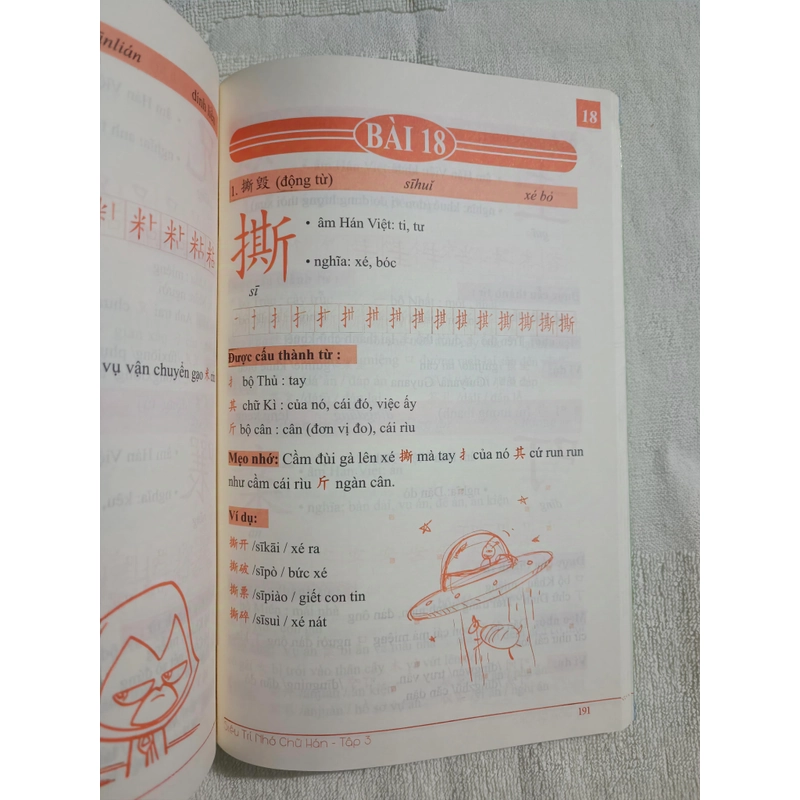 ánlián
dính l
vụ vận chuyển gạo 米
18
BÀI 18
1. 撕毁 (động từ) sīhuǐ xé bỏ
撕
• âm Hán Việt: ti, tư
• nghĩa: xé, bóc
sī
Được cấu thành từ :
扌 bộ Thủ : tay
其 chữ Kì : của nó, cái đó, việc ấy
斤 bộ cân : cân (đơn vị đo), cái rìu
Mẹo nhớ: Cầm đùi gà lên xé 撕 mà tay 扌 của nó 其 cứ run run
như cầm cái rìu 斤 ngàn cân.
Ví dụ:
撕开 /sīkāi / xé ra
撕破 /sīpò / bức xé
撕票 /sīpiào / giết con tin
撕碎 /sīsuì / xé nát
191
Siêu Trí Nhớ Chữ Hán - Tập 3